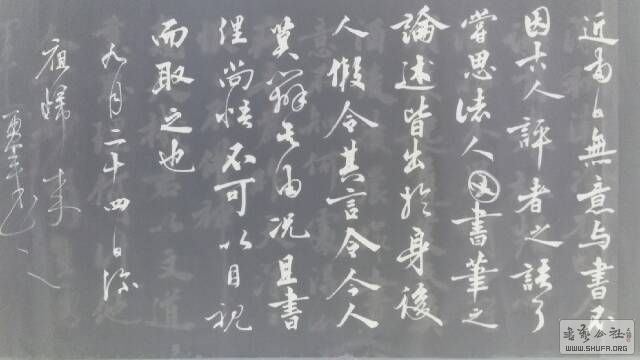 近南〻無意与書不
因古人評者之語了
當思法人又書筆之
論述皆出於身後
人假令其言令今人
莫辭其由況且書
理尚情不可以目視
而取之也
九月二十四日深
夜歸來
書藝公社
WWW.SHUFA.ORG